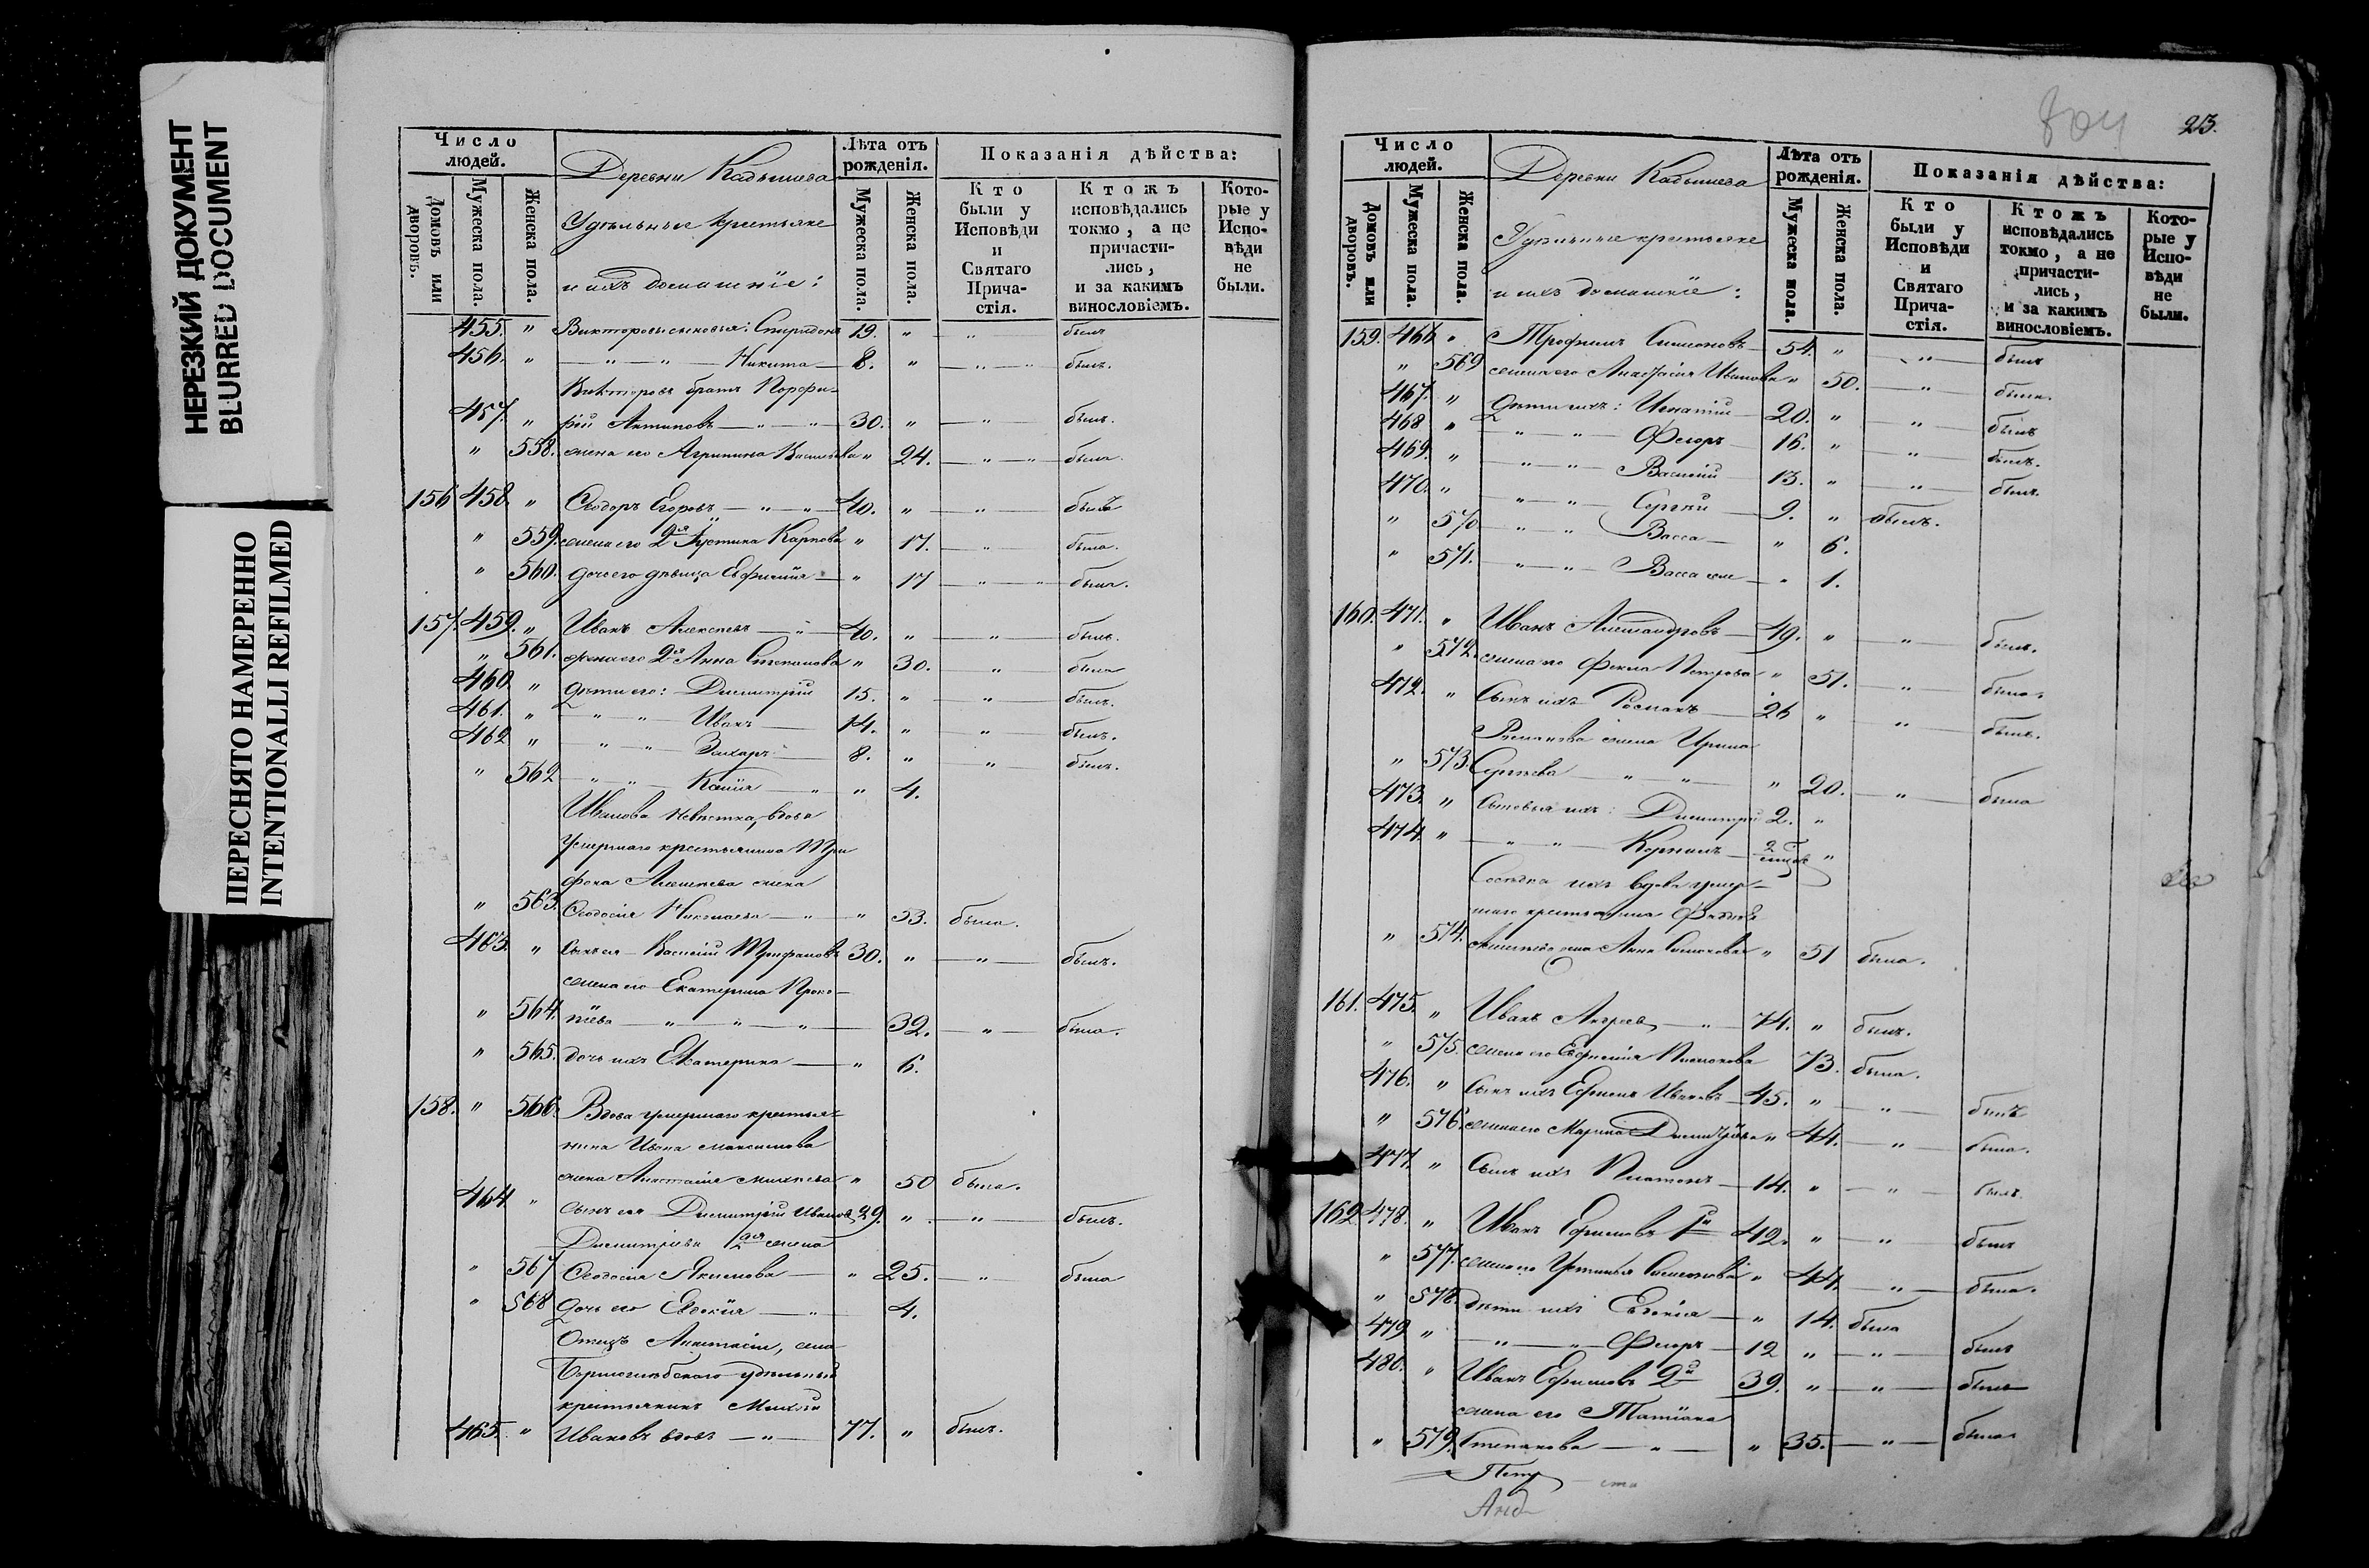 НЕРЕЗКИЙ ДОКУМЕНТ
BLURRED DOCUMENT
ПЕРЕСНЯТО НАМЕРЕННО
INTENTIONALLI REFILMED
Число людей.
Домовъ или дворовъ.
Мужеска пола.
Женска пола.
Деревни Кадышева
Удѣльные крестьяне
и ихъ домашніе:
Лѣта отъ рожденія.
Мужеска пола.
Женска пола.
Показанія дѣйства:
Кто были у Исповѣди и Святаго Причастія.
Ктожъ исповѣдались токмо, а не причастились, и за какимъ винословіемъ.
Которые у Исповѣди не были.
455. " Викторовы сыновья: Спиридонъ 19. " " былъ
456. " " " Никита 8. " " " былъ.
Викторовъ братъ Порфи-
457. " рій Антиповъ " " 30. " " былъ.
" 558. жена его Агрипина Васильева " 24. " " была.
156 458. " Ѳедоръ Егоровъ " " 40. " " былъ
" 559. жена его 2я Іустина Карпова " 17. " была.
" 560. дочь его дѣвица Евфимія " 17 " " была.
157. 459. " Иванъ Алексѣевъ " 40. " " былъ.
" 561. жена его 2я Анна Степанова " 30. " была
460. " дѣти его: Димитрій 15. " " былъ.
461. " " " Иванъ 14. " " былъ.
462 " " " Захаръ 8. " " былъ.
" 562 " " " " 4.
Иванова невѣстка, вдова
умершаго крестьянина Три
фона Алексѣева жена
" 563. Ѳеодосія Николаева " " 53. была.
463. " сынъ ея Василій Трифоновъ 30. " " былъ.
жена его Екатерина Проко-
" 564. піева " " " 32. " была.
" 565. дочь ихъ Екатерина " 6.
158. " 566. Вдова умершаго крестья-
нина Ивана Максимова
жена Анастасія Михѣева " 50 была.
464. " сынъ ея Димитрій Ивановъ 29. " " былъ.
Димитріева 1ая жена
" 567 Ѳеодосія Акимова " 25. " была
" 568 дочь его Евдокія " 4.
Отецъ Анастасіи, села
удѣльный
крестьянинъ Михѣй
465. " Ивановъ вдовъ " 77. " былъ.
804 213.
Число людей.
Домовъ или дворовъ.
Мужеска пола.
Женска пола.
Деревни Кадышева
Удѣльные крестьяне
и ихъ домашніе:
Лѣта отъ рожденія.
Мужеска пола.
Женска пола.
Показанія дѣйства:
Кто были у Исповѣди и Святаго Причастія.
Ктожъ исповѣдались токмо, а не причастились, и за какимъ винословіемъ.
Которые у Исповѣди не были.
159. 466 " Трофимъ Симоновъ 54. " " былъ
" 569 жена его Анастасія Иванова " 50. " была.
467. " дѣти ихъ: Игнатій 20. " " былъ
468 " " " Ѳедоръ 16. " " былъ.
469. " " " Василій 13. " " былъ.
470. " " " Сергѣй 9. " былъ.
" 570 " " Васса " 6.
" 571. " " Васса " 1.
160. 471. " Иванъ Александровъ 49. " " былъ.
" 572. жена его Фекла Петрова " 51. " была.
472. " Сынъ ихъ Романъ 26 " " былъ.
Романова жена Ирина
" 573. Сергѣева " " " 20. " была
473. " Сыновья ихъ: Димитрій 2. "
474. " " " Корнилъ 2 "
Сосѣдка ихъ вдова умер-
шаго крестьянина
" 574. жена Анна Симонова " 51 была.
161. 475. " Иванъ Андреевъ " 74. " былъ.
" 575. жена его Евфимія 73. была.
476. " Сынъ ихъ Ефимъ Ивановъ 45. " " былъ
" 576. жена его Марина Димитріева " 44. " была.
477. " Сынъ ихъ Платонъ 14. " " былъ.
162. 478. " Иванъ Ефимовъ 1й 42. " " былъ
" 577. жена его Устинья Симонова " 44. " была.
" 578. дѣти ихъ Евдокія " 14. была
479 " " " Ѳедоръ 12 " " былъ
480. " Иванъ Ефимовъ 2й 39. " " былъ
жена его Татіана
" 579. Степанова " " 35. " была